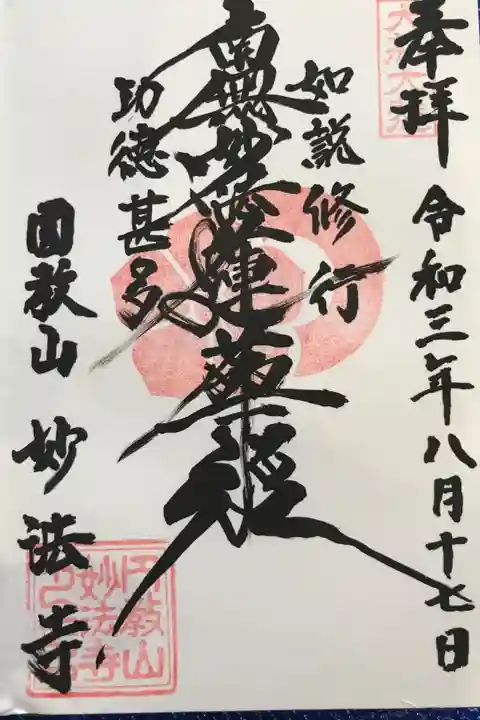 奉拝
令和三年八月十七日
如説修行
南無妙法蓮華経
功徳甚多
円教山 妙法寺
円教山
妙法寺